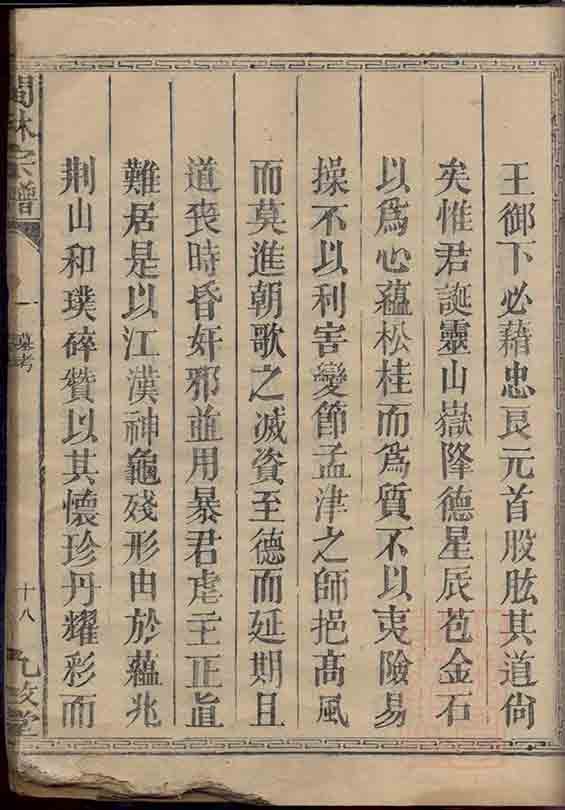 王御下必藉忠良元首股肱其道尙
矣惟君誕靈山嶽降德星辰苞金石
以爲心蘊松桂而爲質不以夷險易
操不以利害變節孟津之師挹高風
而莫進朝歌之滅資至德而延期且
道喪時昏奸邪並用暴君虐主正直
難居是以江漢神龜殘形由於蘊兆
荆山和璞碎質以其懷珍丹耀彩而
林宗譜
一
墓考
十八
九牧堂